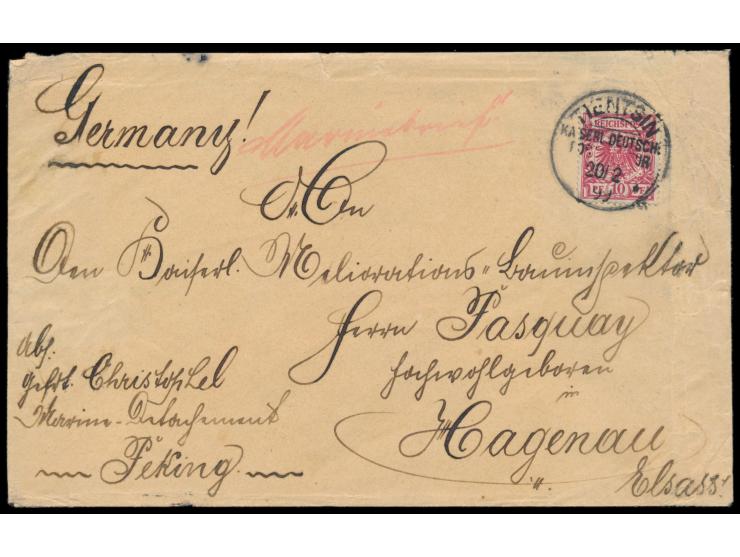 Germany!
"Marinebrief"
TIENTSIN
KAISERL. DEUTSCHE
20/2
99
REICHSPOST
10
An
Den Kaiserl. Meliorations-Bauinspektor
Herrn Pasquay
Hochwohlgeboren
in
Hagenau
Elsass.
Abs:
Gefrt. Christophel
Marine-Detachement
Peking.